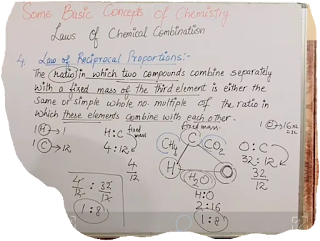 Some Basic Concepts of Chemistry
Laws of Chemical Combination
4. Law of Reciprocal Proportions:-
The ratio in which two compounds combine separately
with a fixed mass of the third element is either the
same or simple whole no. multiple of the ratio in
which these elements combine with each other.
H → 1
C → 12
H : C fixed mass
4 : 12
4
12
4/12 : 32/12
1 : 8
fixed mass
C
CH4 CO2
H O
H2O
4:O
2:16
1:8
O : C
32 : 12
32
12